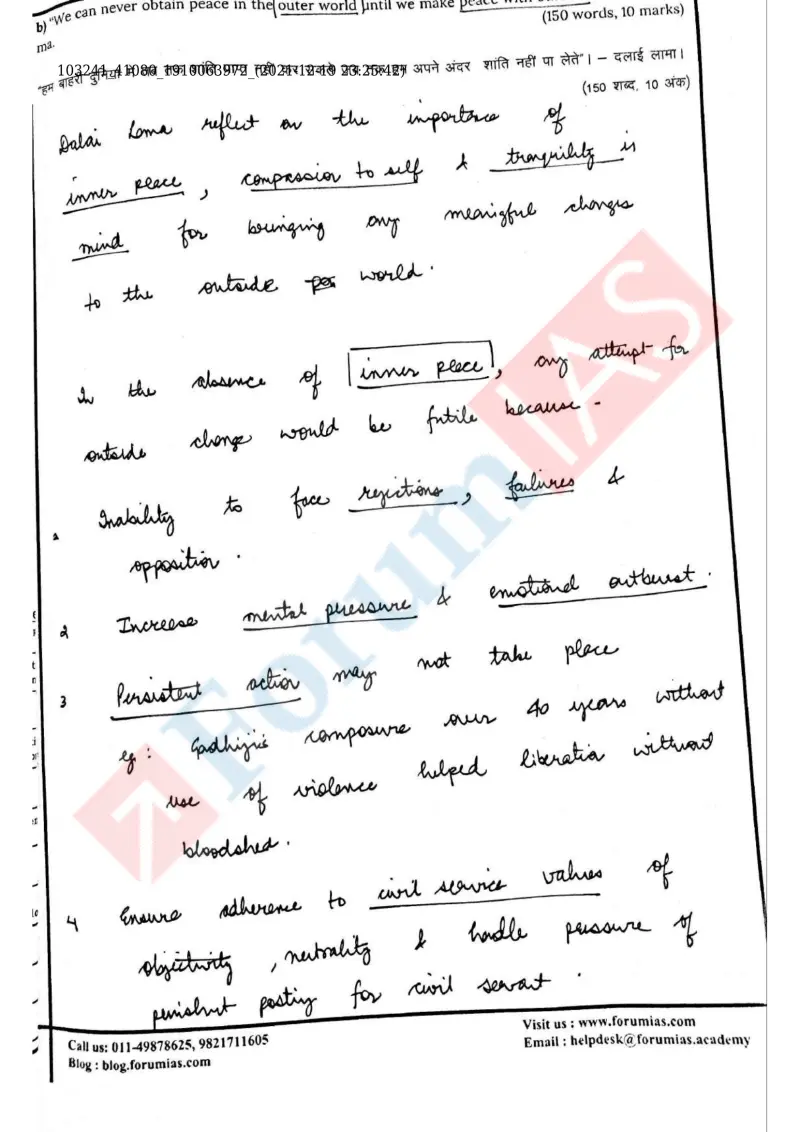 b) "We can never obtain peace in the outer world until we make peace with
(150 words, 10 marks)
ma.
103241_41080_1910063972_(2021-12-10 23:25:42)
"हम बाहरी अपने अंदर शांति नहीं पा लेते"। – दलाई लामा।
(150 शब्द, 10 अंक)
Dalai Lama reflect on the importance of
inner peace, compassion to self & tranquility is
mind for bringing any meaningful changes
to the outside world.
In the absence of inner peace, any attempt for
outside change would be futile because -
1 Inability to face rejections, failures &
opposition.
2 Increase mental pressure & emotional outburst.
3 Persistent action may not take place
eg: Gadhiji's composure over 40 years without
use of violence helped liberation without
bloodshed.
4 Ensure adherence to civil service values of
objectivity, neutrality & handle pressure of
punishment posting for civil servant.
Call us: 011-49878625, 9821711605
Blog : blog.forumias.com
Visit us : www.forumias.com
Email : helpdesk@forumias.academy
ForumIAS